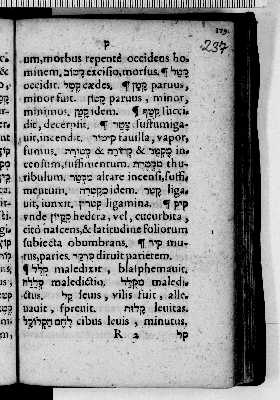 179.
237
ק
um, morbus repentè occidens ho-
minem. קטום excisio, morsus. ¶ קטל
occidit. קטל cædes. ¶ קטן paruus,
minor fuit. קטון paruus, minor,
minimus. קטן idem. ¶ קטף succi-
dit, decerpsit. ¶ קטר suffumiga-
uit, incendit. קיטור fauilla, vapor,
fumus. קטרת & קטורה & מקטר in-
censum, suffimentum. מקטרת thu-
ribulum. מקטר altare incensi, suffi-
mentum. מקטרות idem. קטר liga-
uit, iunxit. קטרין ligamina. ¶ קיק
vnde קיקיון hedera, vel, cucurbita,
citò nascens, & latitudine foliorum
subiecta obumbrans. ¶ קיר mu-
rus, paries. מקרקר diruit parietem.
¶ קלל maledixit, blasphemauit.
קללה maledictio. מקלל maledi-
ctus. קל leuis, vilis fuit, alle-
uauit, spreuit. קלות leuitas.
לחם הקלוקל cibus leuis, minutus,
R 2 קל